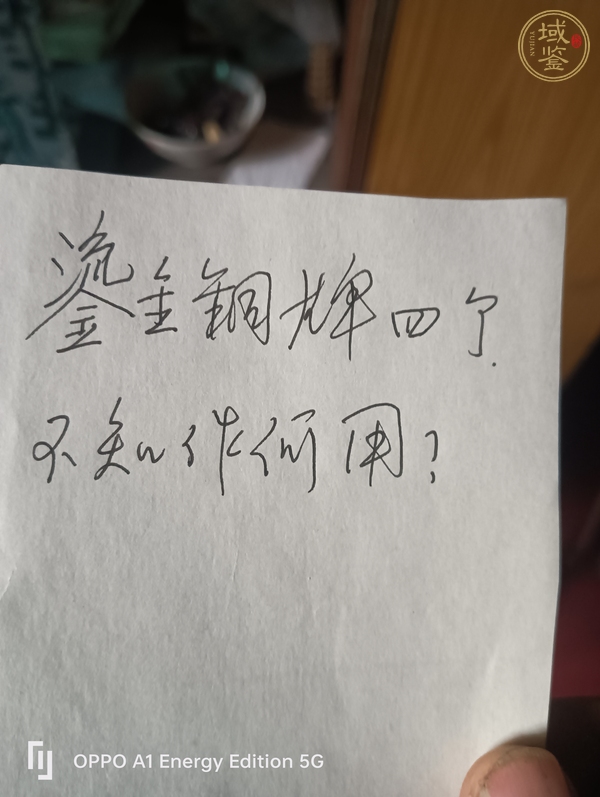 域鉴
YUJIAN
鎏金銅牌四个.
不知作何用?
OPPO A1 Energy Edition 5G